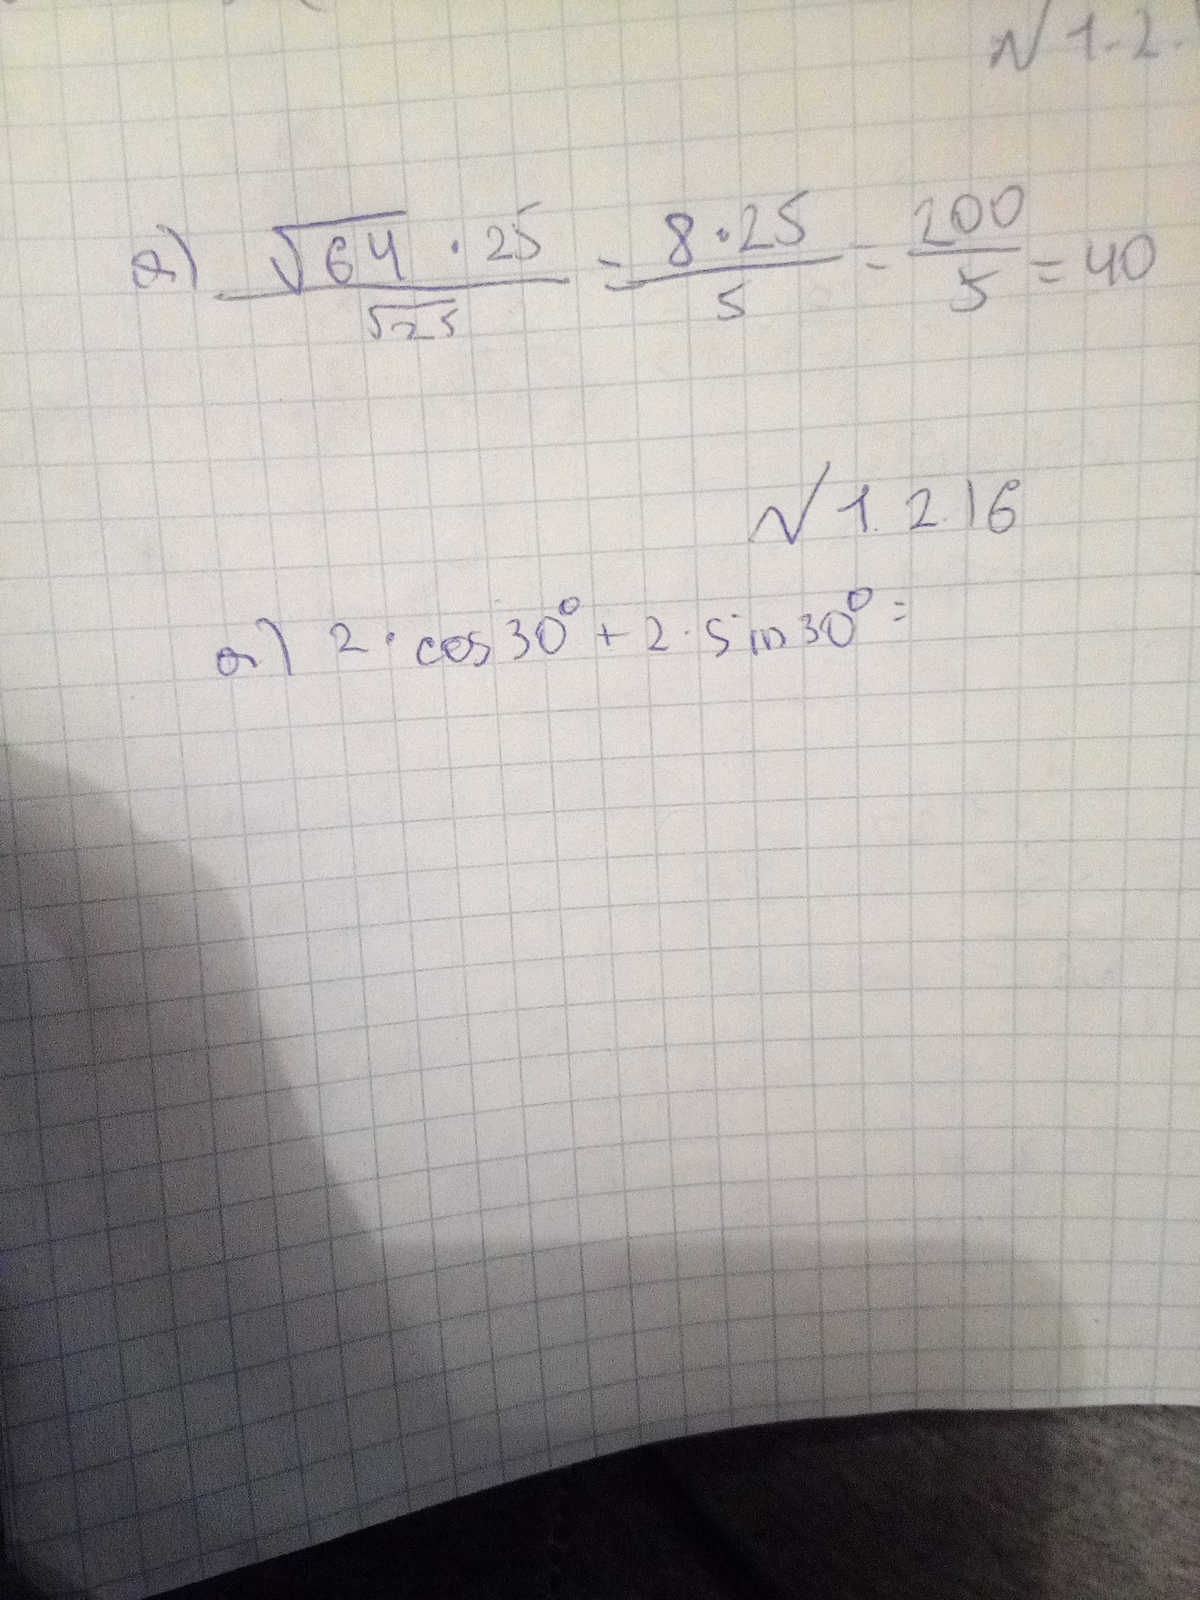 № 1.2.
а) √64 · 25 / √25 = 8 · 25 / 5 = 200 / 5 = 40
№ 1.2.16
а) 2 · cos 30° + 2 · sin 30° =